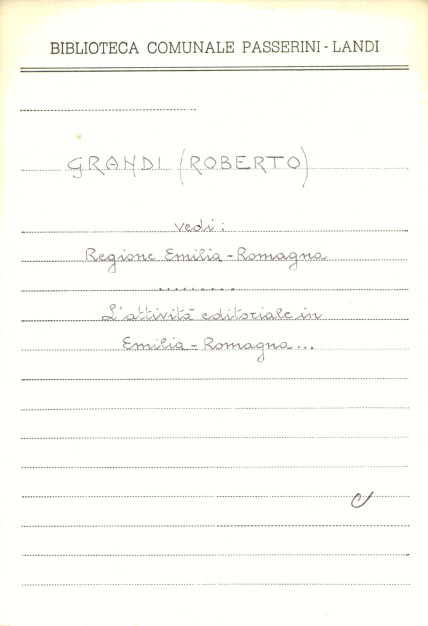 BIBLIOTECA COMUNALE PASSERINI - LANDI
GRANDI (ROBERTO)
vedi:
Regione Emilia - Romagna
.........
L'attività editoriale in
Emilia - Romagna...